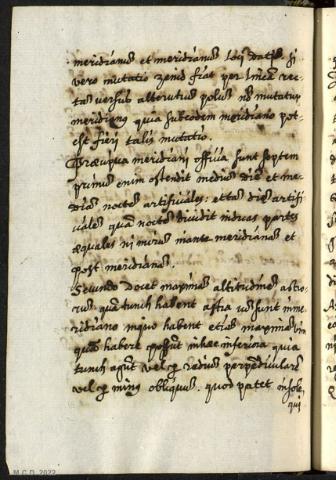 meridianus et meridianus loci dati si
vero mutatio zenid fiat per lineã rec-
tas versus alterutrũ polũ nõ mutatur
meridiano quia sub eodem meridiano pot-
est fieri talis mutatio.
Præcipua meridiani officia sunt septem
primus enim ostendit mediũ diẽ et me-
diã noctẽ artificiales: et tã diẽ artifi-
cialẽ quã noctẽ dividit in duas partes
æquales nimirũ in ante meridianã et
post meridianã.
Secundo docet maximas altitudines astro-
rũ quã tunch habent astra cũ sunt in me-
ridiano in quo habent etiã maximã vim
quã habere possũt in hæc inferiora quia
tunch agũt vel radius perpendiculares
vel minus obliquus. quod patet in sole,
qui
M.C.D. 2022